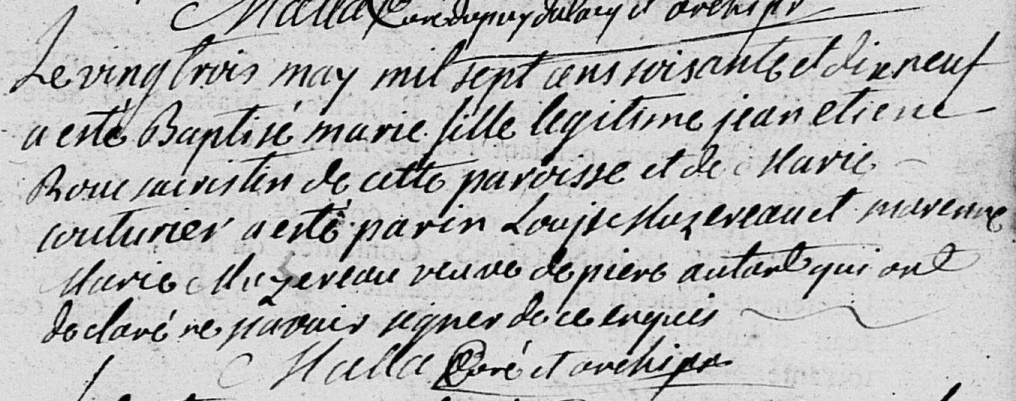 Malla Curé dupuy dulacq et archipr
Le vingtrois may mil sept cens soisante et dix neuf
a esté Baptisé marie fille legitime jean etiene
Roue sacristin de cette paroisse et de Marie
couturier a esté parin Louise Muzereau et marenne
Marie Muzereau veuve de piere autant qui ont
declaré ne savoir signer de ce enquis
Malla Curé et archipr